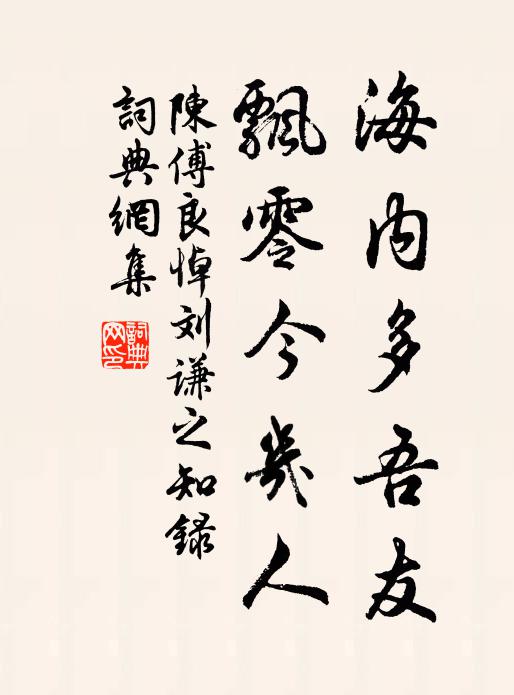 海内多吾友
飄零今幾人
陳傅良悼刘謙之知録
詞典網集
詞典网印